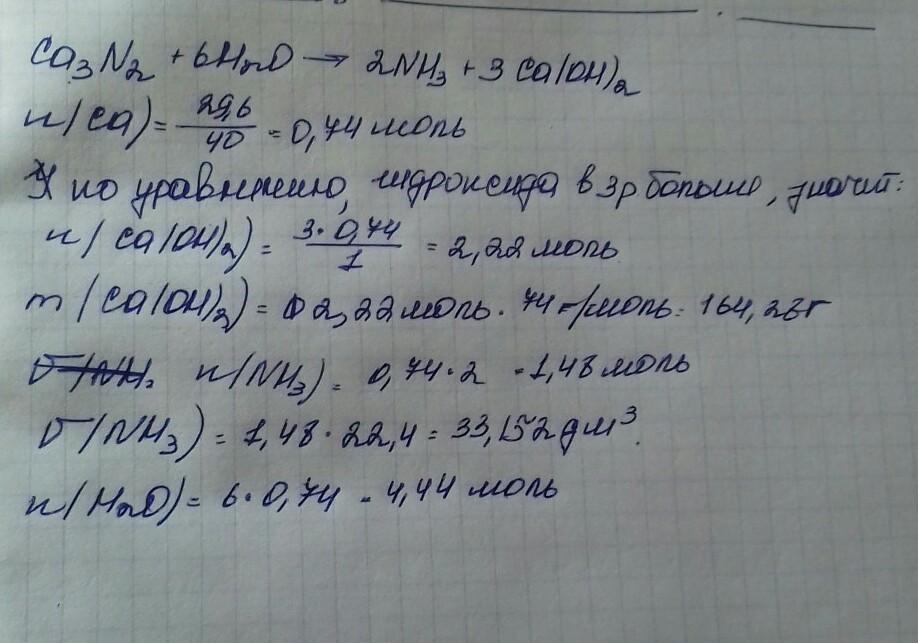 Ca₃N₂ + 6H₂O → 2NH₃ + 3 Ca(OH)₂
n(Ca) = 29,6/40 = 0,74 моль
У по уравнению, гидроксида в 3р больше, значит:
n(Ca(OH)₂) = 3·0,74/1 = 2,22 моль
m(Ca(OH)₂) = 2,22 моль · 74 г/моль = 164,28г
n(NH₃) = 0,74·2 = 1,48 моль
V(NH₃) = 1,48 · 22,4 = 33,152 дм³.
n(H₂O) = 6·0,74 = 4,44 моль